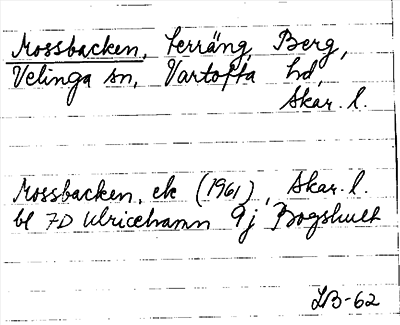 Mossbacken, Terräng, Berg,
Velinga sn, Vartofta hd,
Skar. l.
Mossbacken, ek (1961), Skar. l.
bl 7D Ulricehamn 9j Bogshult
LB-62